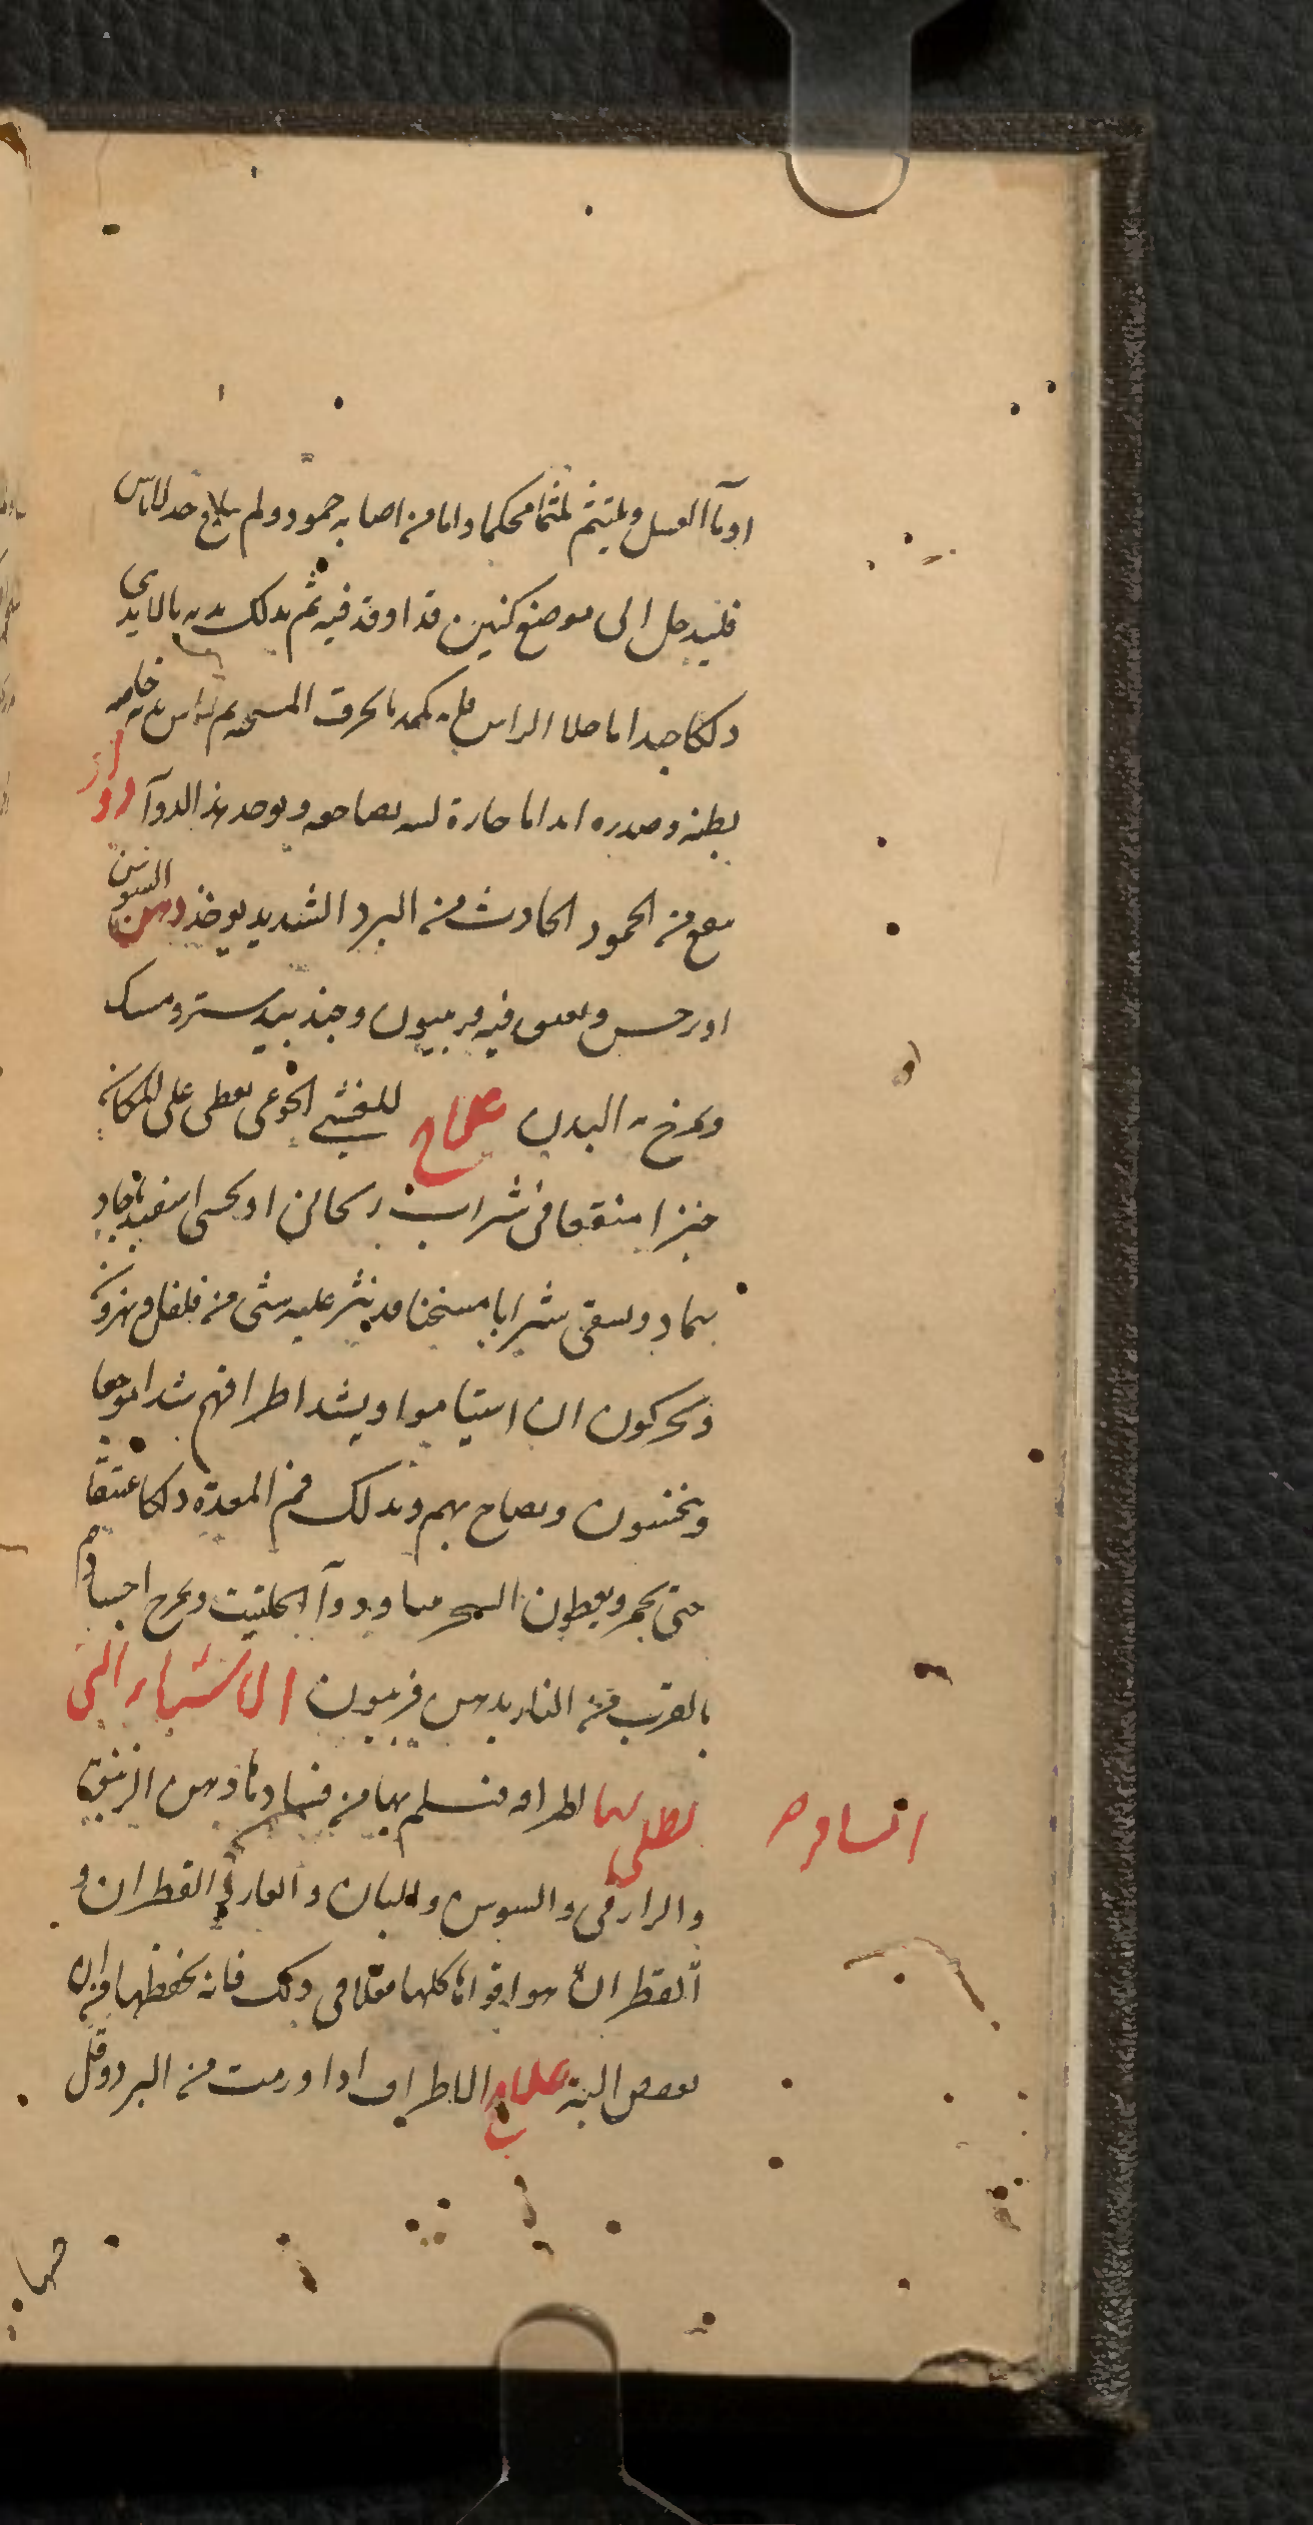 او مآ العسل ويلتثم لثما محكما واما من اصابه جمود ولم يبلغ حد الاياس
فليدخل الى موضع كنين قد اوقد فيه ثم يدلك بدنه بالايدى
دلكا جيدا ما خلا الراس فانه يكمد بالخرق المسخنه ثم
بطنه وصدره ابدانا حارة لينه ويوجد هذا الدوآ دوآ
ينفع من الجمود الحادث من البرد الشديد يوخذ دهن السوسن
او نرجس ويفتق فيه فربيون وجندبيدستر ومسك
ويمرخ به البدن علاج للغشي الجوعى يعطى على المكانه
خبزا منقعا فى شراب ريحانى او يحسى اسفيدباجا او
بماد ويسقى شرابا مسخنا قد ينثر عليه شى من فلفل
ويحركون ان استناموا ويشد اطرافهم شدا موجعا
وينخسون ويصاح بهم ويدلك فم المعدة دلكا عنيفا
حتى يحمر ويعطون السجرنيا ودوآ الحلتيت ويمرخ اجسادهم
بالقرب من النار بدهن فربيون الاشيا التى
يطلى بها اطرافه فتسلم بها من فسادها دهن الزنبق
انسا فره
والرازقى والسوسن والبان والغار فى القطران و
القطران هو اقواها كلها فعلا فى ذلك فانه يحفظها من ان
تعفن البتة علاج الاطراف اذا ورمت من البرد وقل